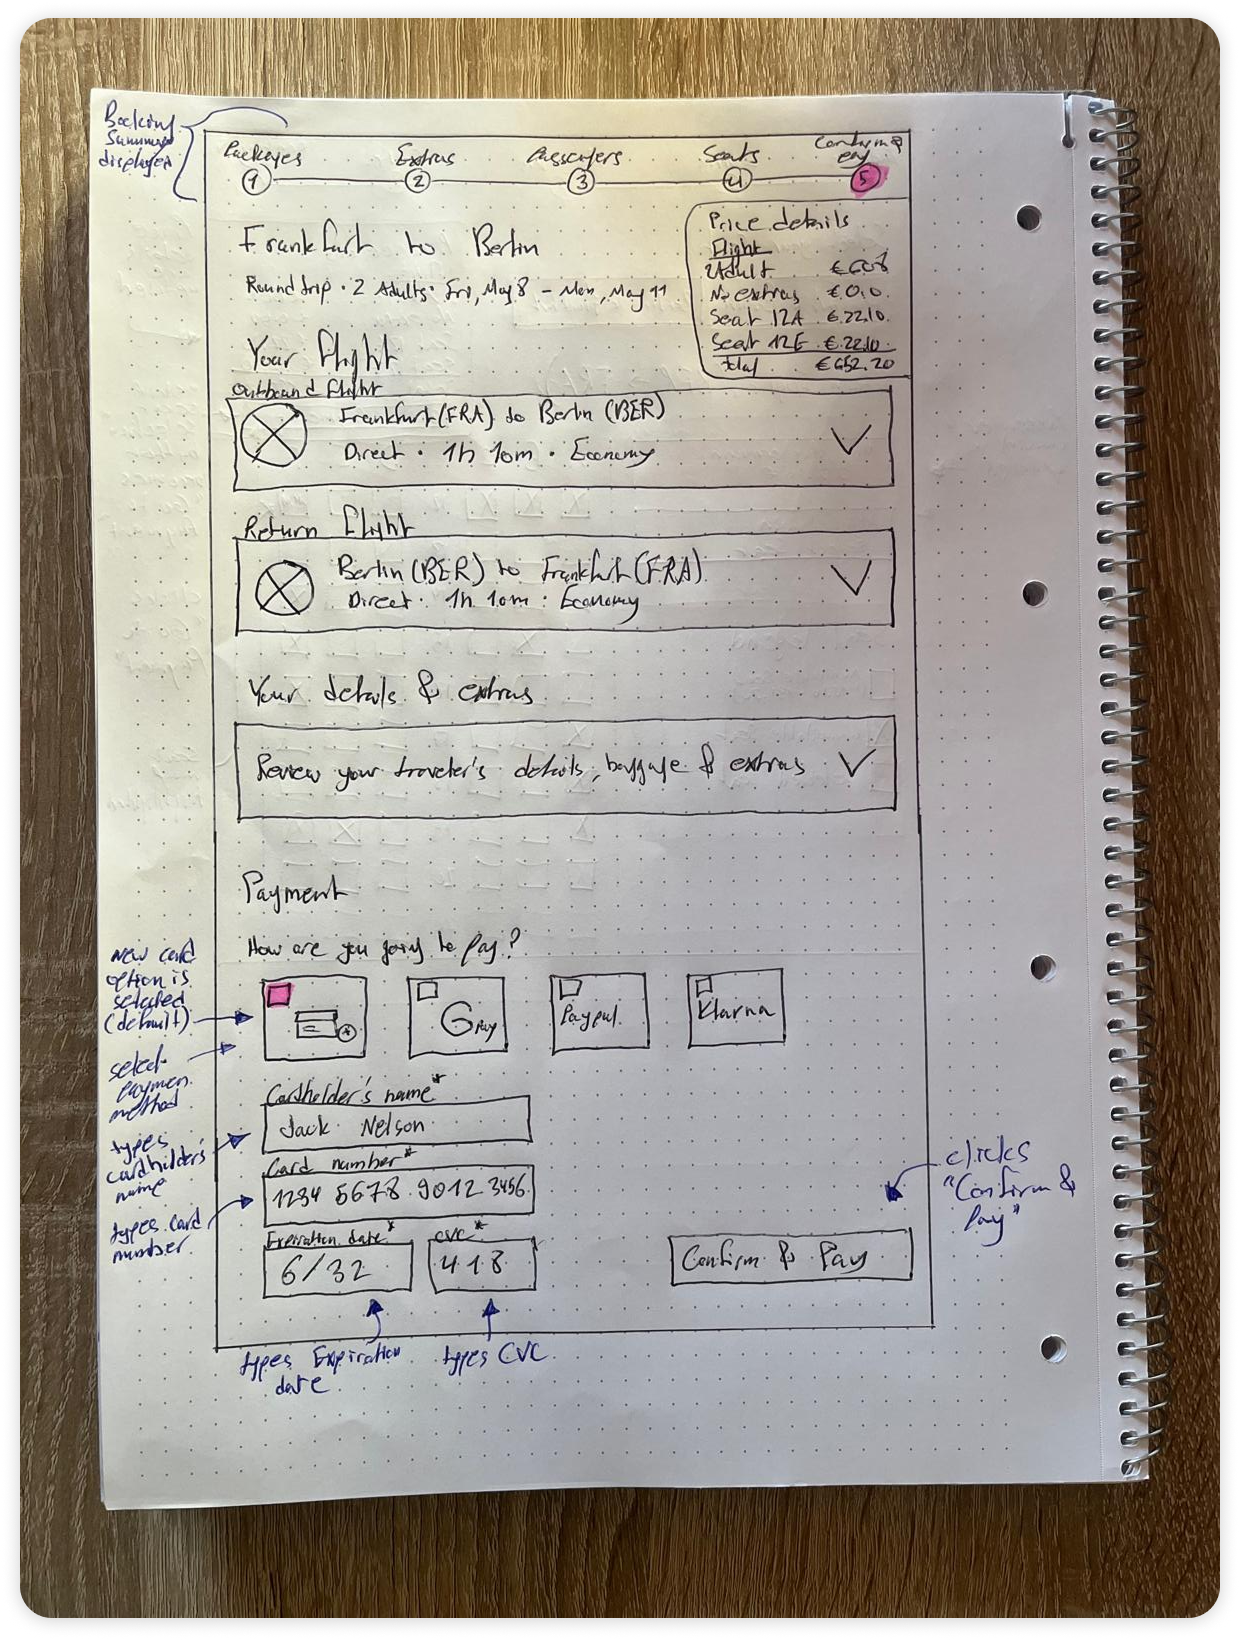 Booking
summary
displayed
Packages
Extras
Passengers
Seats
Confirm &
pay
1
2
3
4
5
Frankfurt to Berlin
Round trip · 2 Adults · Fri, May 8 - Mon, May 11
Price details
Flight
2 Adult € 608
No extras € 0,0
Seat 12A € 22.10
Seat 12E € 22.10
total € 652.20
Your flight
Outbound flight
Frankfurt (FRA) to Berlin (BER)
Direct · 1h 10m · Economy
Return flight
Berlin (BER) to Frankfurt (FRA)
Direct · 1h 10m · Economy
Your details & extras
Review your traveler's details, baggage & extras
Payment
How are you going to pay?
new card
option is
selected
(default)
G Pay
Paypal
Klarna
select
paymen
method
Cardholder's name*
Jack Nelson
types
cardholder's
name
Card number*
1234 5678 9012 3456
types card
number
Expiration date*
CVC*
6/32
418
Confirm & Pay
clicks
"Confirm &
Pay"
types Expiration
date
types CVC